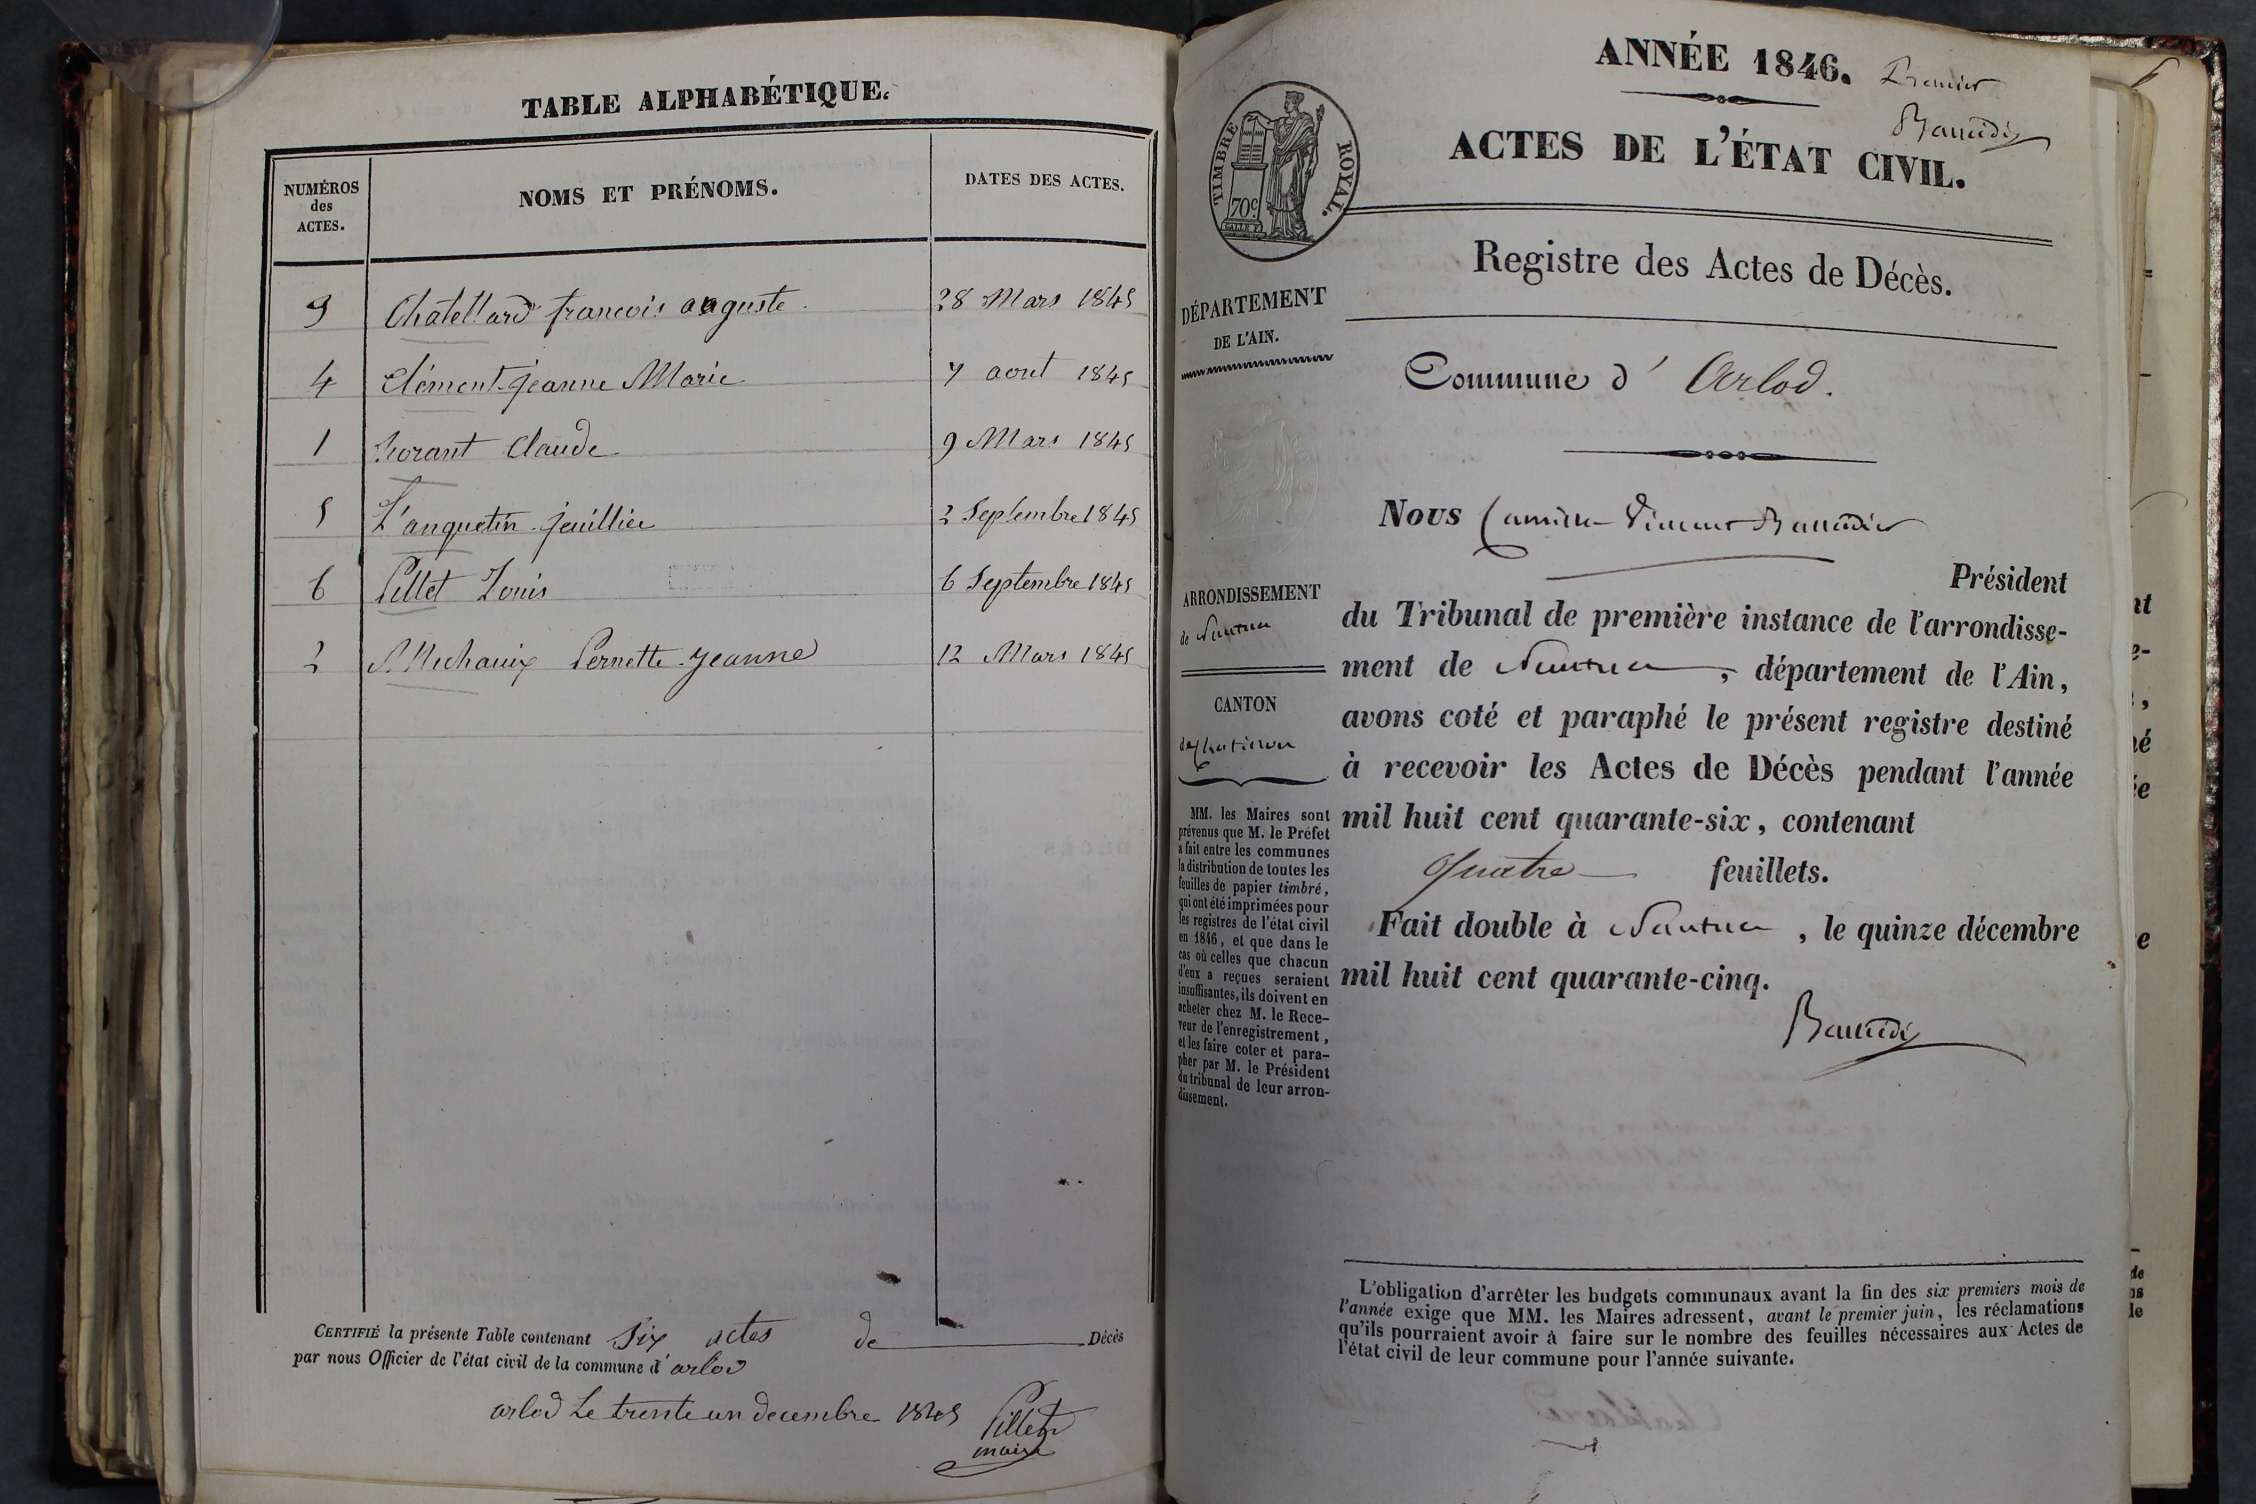 TABLE ALPHABÉTIQUE.
NUMÉROS
des
ACTES.
NOMS ET PRÉNOMS.
DATES DES ACTES.
3 Chatellard françois auguste 28 Mars 1845
4 Clément jeanne Marie 7 aout 1845
1 Claude 9 Mars 1845
5 L'anquetin 2 Septembre 1845
6 Pillet Louis 6 Septembre 1845
2 Michaux Pernette jeanne 12 Mars 1845
CERTIFIÉ la présente Table contenant Six actes de Décès
par nous Officier de l'état civil de la commune d'arlod
arlod Le trente un decembre 1845
Pillet
maire
ANNÉE 1846.
Premier
TIMBRE ROYAL.
70c
ACTES DE L'ÉTAT CIVIL.
Registre des Actes de Décès.
DÉPARTEMENT
DE L'AIN.
Commune d'Arlod.
ARRONDISSEMENT
de Nantua
CANTON
de Chatillon
MM. les Maires sont
prévenus que M. le Préfet
a fait entre les communes
la distribution de toutes les
feuilles de papier timbré,
qui ont été imprimées pour
les registres de l'état civil
en 1846, et que dans le
cas où celles que chacun
d'eux a reçues seraient
insuffisantes, ils doivent en
acheter chez M. le Rece-
veur de l'enregistrement,
et les faire coter et para-
pher par M. le Président
du tribunal de leur arron-
dissement.
Nous Camille Vincent
Président
du Tribunal de première instance de l'arrondisse-
ment de Nantua, département de l'Ain,
avons coté et paraphé le présent registre destiné
à recevoir les Actes de Décès pendant l'année
mil huit cent quarante-six, contenant
quatre feuillets.
Fait double à Nantua, le quinze décembre
mil huit cent quarante-cinq.
L'obligation d'arrêter les budgets communaux avant la fin des six premiers mois de
l'année exige que MM. les Maires adressent, avant le premier juin, les réclamations
qu'ils pourraient avoir à faire sur le nombre des feuilles nécessaires aux Actes de
l'état civil de leur commune pour l'année suivante.